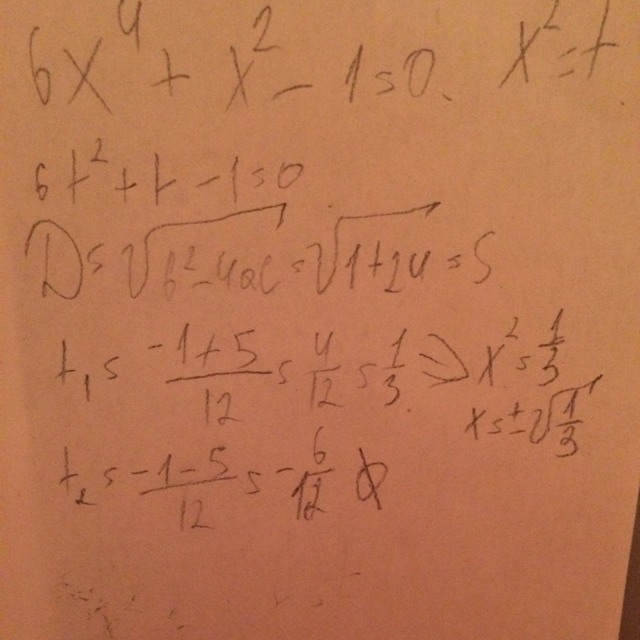 6x⁴ + x² - 1 = 0. x² = t
6t² + t - 1 = 0
D = √b² - 4ac = √1 + 24 = 5
t₁ = -1+5/12 = 4/12 = 1/3 ⇒ x² = 1/3
x = ±√1/3
t₂ = -1-5/12 = -6/12 ∅